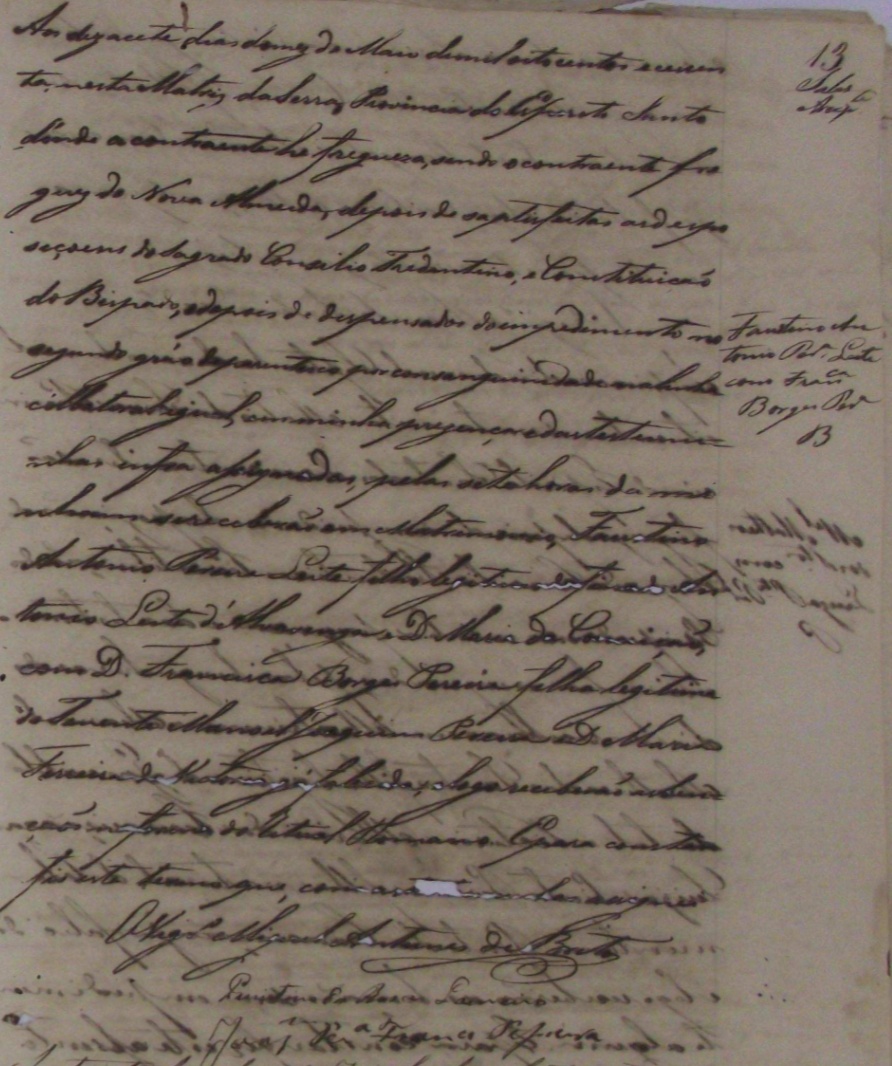 Aos dezacete dias do mez de Maio de mil oitocentos e cecen
ta, nesta Matriz da Serra, Provincia do Espirito Santo
d'onde a contraente he fregueza, sendo o contraente fre
guez de Nova Almeida, depois de saptisfeitas as despo
seçoens do Sagrado Concilio Tredentino, e Constituição
do Bispado, e depois de despensados do impedimento no
segundo gráo de parentesco por consanguinidade na linha
collateral igual, em minha prezença e das testemu=
nhas infra assignadas, pelas sete horas da
se receberão em Matrimonio, Faustino
Antonio Pereira Leite filho legitimo do finado An
tonio Leite d'Alvarenga e D. Maria da Conceição,
com D. Francisca Borges Pereira filha legitima
do Tenente Manoel Joaquim Pereira e D. Maria
Ferreira da Victoria já falecida, e logo receberão as ben=
çaõs na forma do Ritual Romano. E para constar
fiz este termo que, com as
O Vigr.º Miguel Antunes de Brito
13
Faustino An
tonio Per.ª Leite
com Fran.ca
Borges Per.ª
B